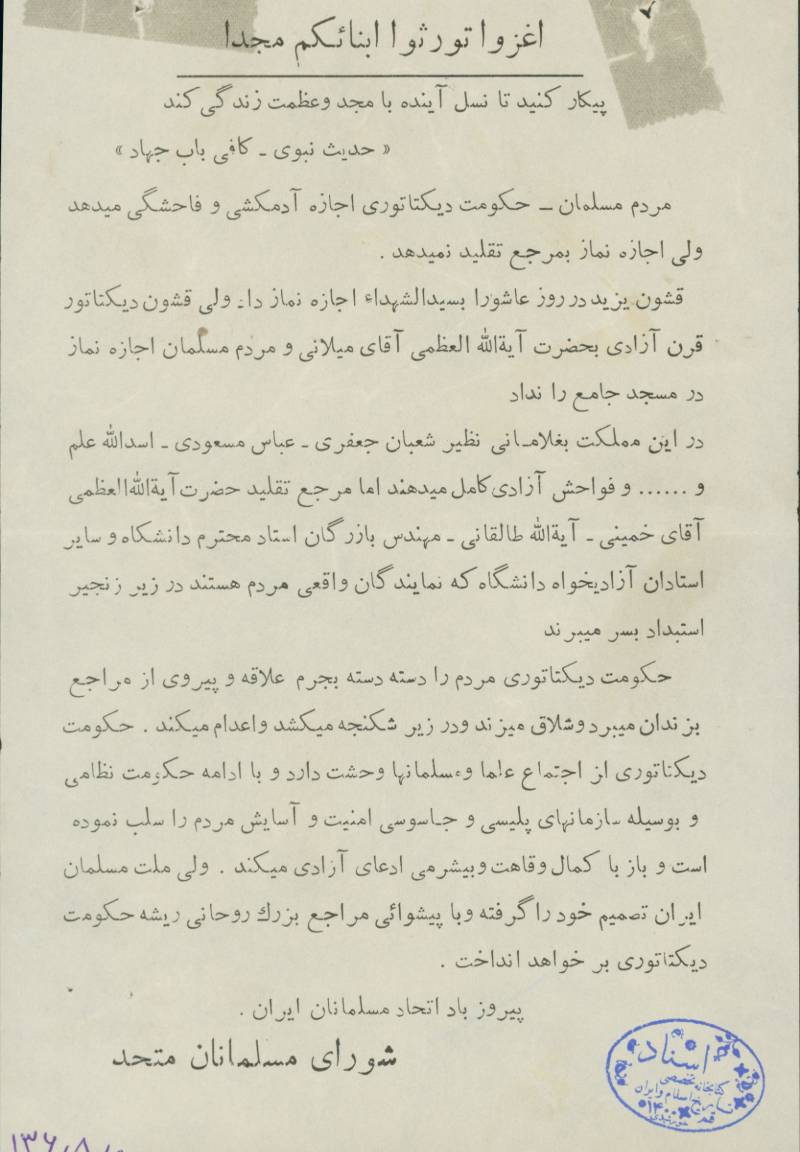 اغزوا تورثوا ابنائکم مجدا
پیکار کنید تا نسل آینده با مجد وعظمت زندگی کند
« حدیث نبوی ـ کافی باب جهاد »
مردم مسلمان ــ حکومت دیکتاتوری اجازه آدمکشی و فاحشگی میدهد
ولی اجازه نماز بمرجع تقلید نمیدهد .
قشون یزید در روز عاشورا بسیدالشهداء اجازه نماز داد ولی قشون دیکتاتور
قرن آزادی بحضرت آیةالله العظمی آقای میلانی و مردم مسلمان اجازه نماز
در مسجد جامع را نداد
در این مملکت بغلامانی نظیر شعبان جعفری ـ عباس مسعودی ـ اسدالله علم
و ...... و فواحش آزادی کامل میدهند اما مرجع تقلید حضرت آیةالله العظمی
آقای خمینی ـ آیةالله طالقانی ـ مهندس بازرگان استاد محترم دانشکاه و سایر
استادان آزادیخواه دانشگاه که نمایندگان واقعی مردم هستند در زیر زنجیر
استبداد بسر میبرند
حکومت دیکتاتوری مردم را دسته دسته بجرم علاقه و پیروی از مراجع
بزندان میبرد وشلاق میزند ودر زیر شکنجه میکشد واعدام میکند . حکومت
دیکتاتوری از اجتماع علما ومسلمانها وحشت دارد و با ادامه حکومت نظامی
و بوسیله سازمانهای پلیسی و جاسوسی امنیت و آسایش مردم را سلب نموده
است و باز با کمال وقاهت وبیشرمی ادعای آزادی میکند . ولی ملت مسلمان
ایران تصمیم خود را گرفته وبا پیشوائی مراجع بزرك روحانی ریشه حکومت
دیکتاتوری بر خواهد انداخت .
پیروز باد اتحاد مسلمانان ایران .
شورای مسلمانان متحد
اسناد
کتابخانه تخصصی
تاریخ اسلام و ایران
قم